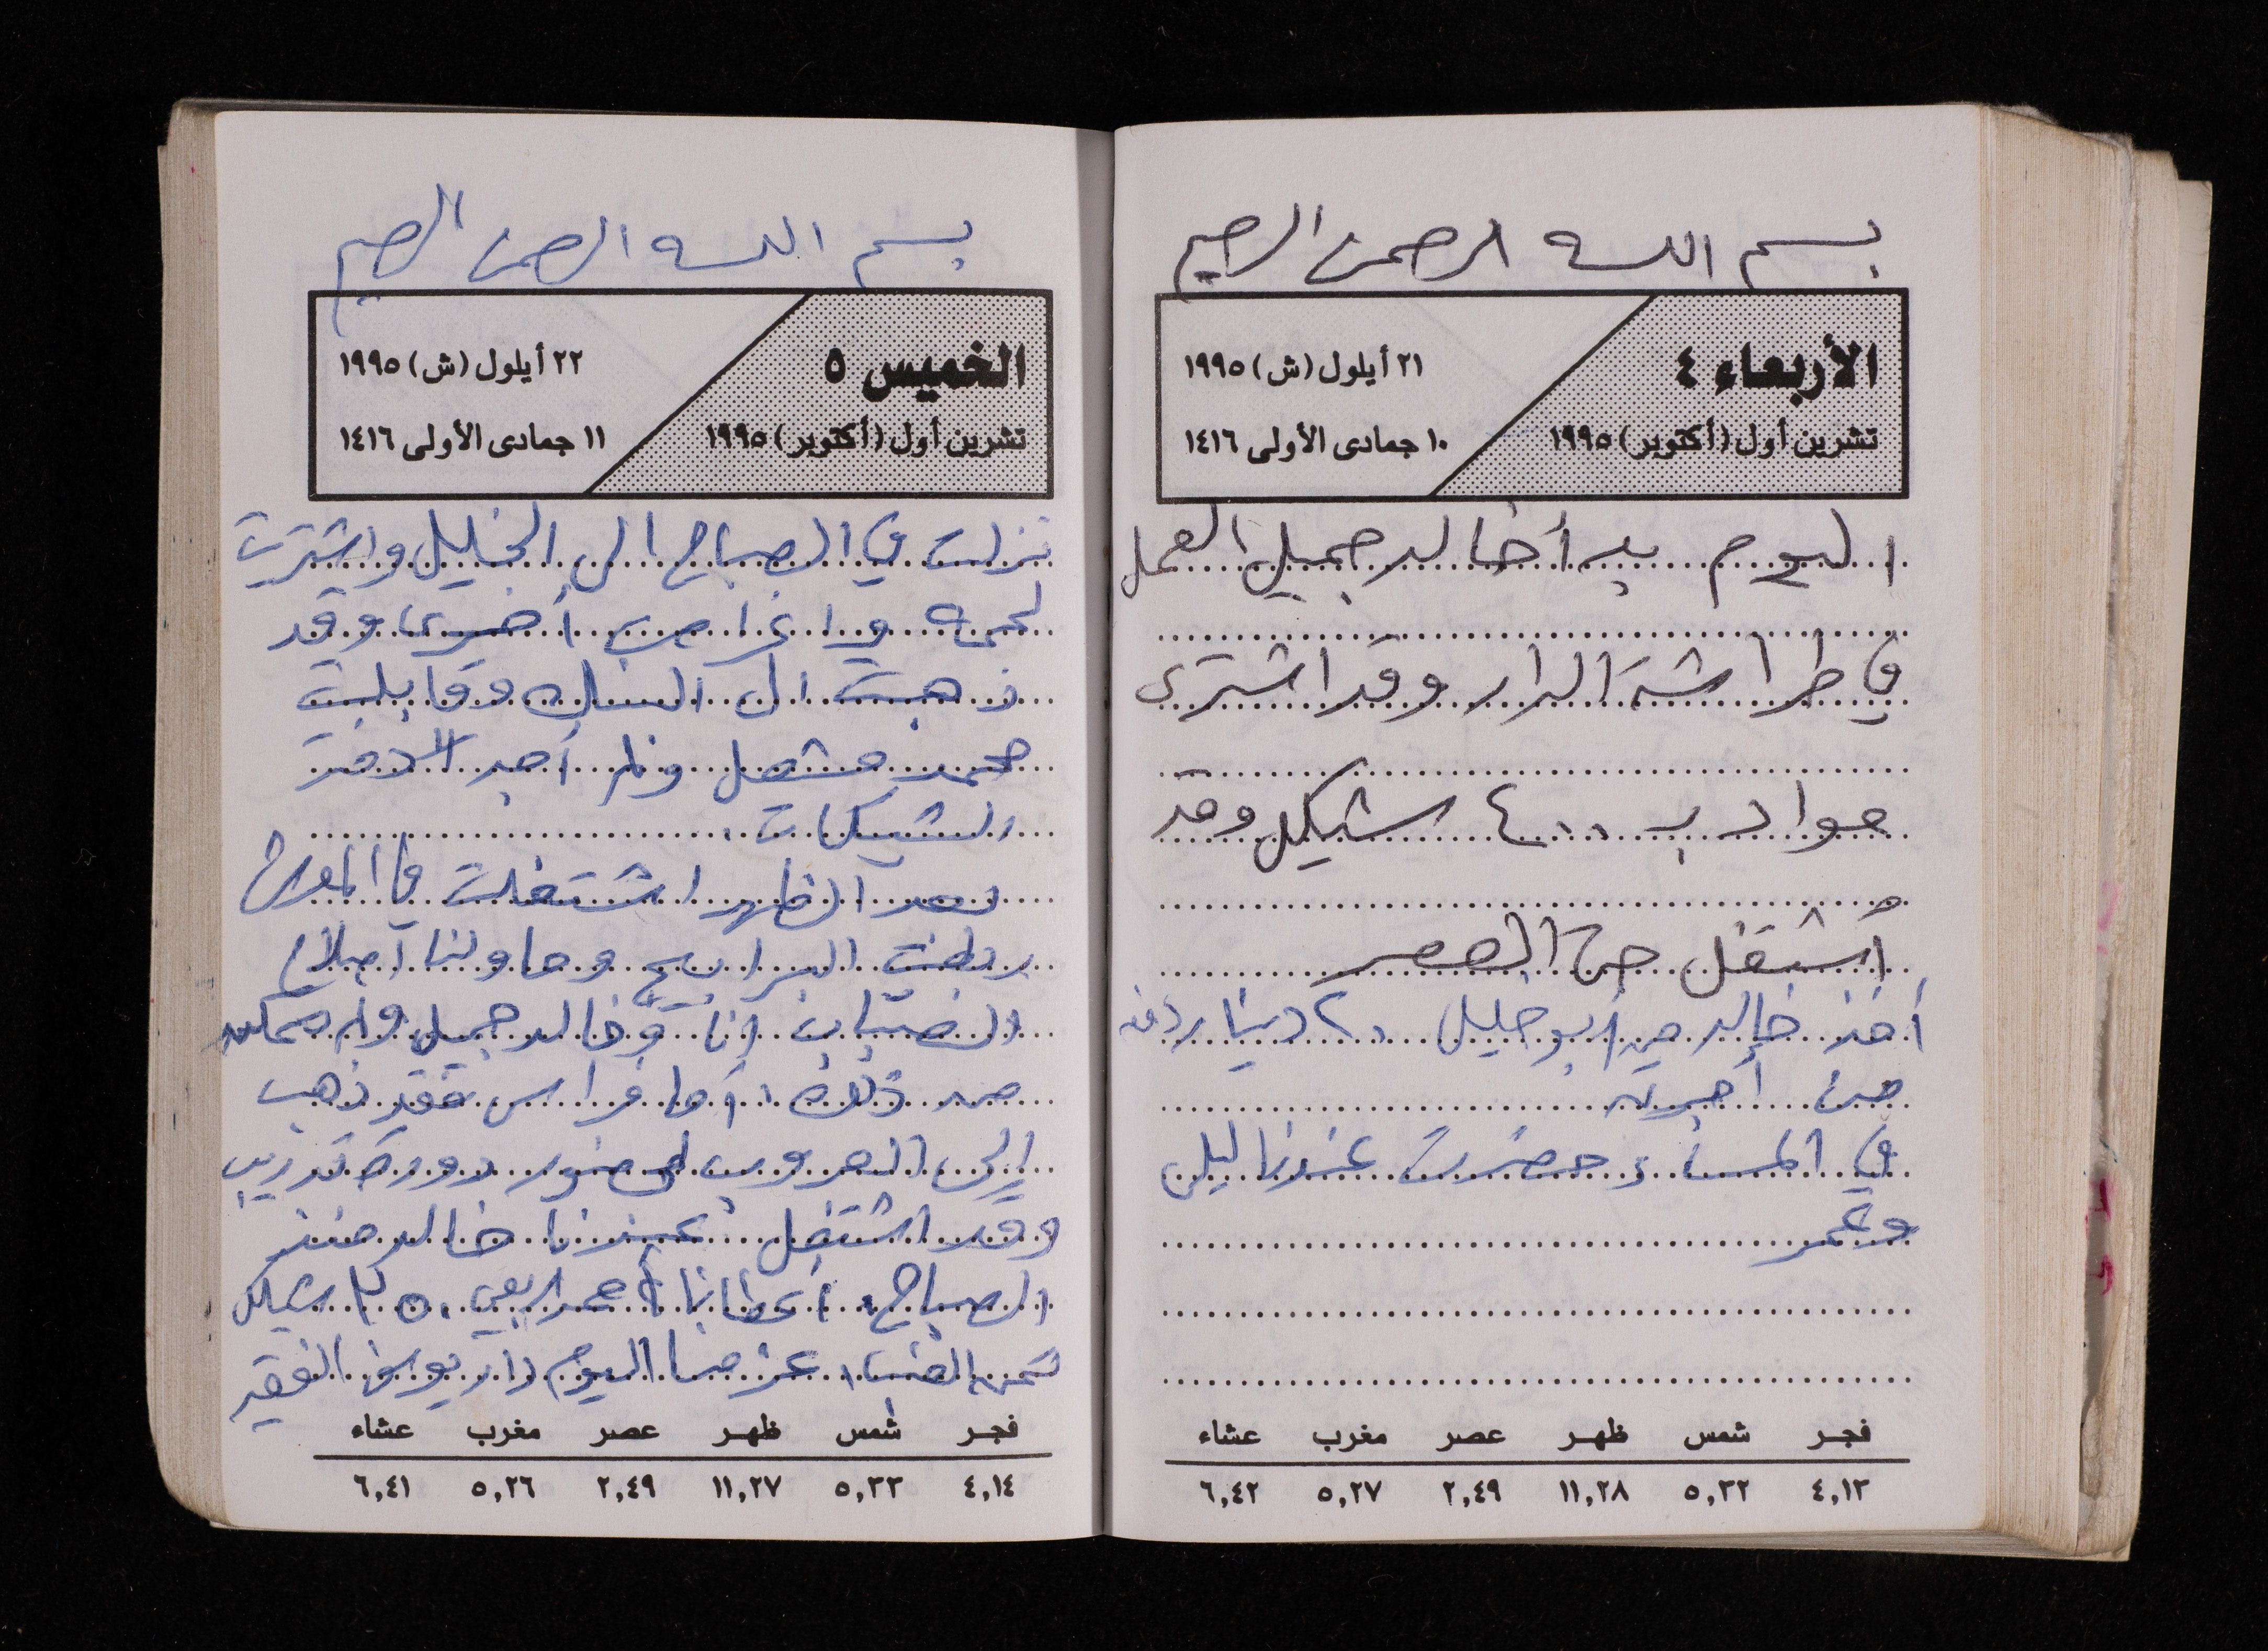 بسم الله الرحمن الرحيم
الأربعاء ٤
٢١ أيلول (ش) ١٩٩٥
تشرين أول (أكتوبر) ١٩٩٥
١٠ جمادى الأولى ١٤١٦
اليوم بدأ خالد جميل العمل
في طراشة الدار وقد اشترى
مواد ب ٤٠٠ شيكل وقد
أشتغل حتى العصر
أخذ خالد من أبو خليل ٢٠ دينار دفعة
من أجرته
في المساء حضرت عندنا ليلى
وعمر
فجر شمس ظهر عصر مغرب عشاء
٤,١٣ ٥,٣٢ ١١,٢٨ ٢,٤٩ ٥,٢٧ ٦,٤٢
بسم الله الرحمن الرحيم
الخميس ٥
٢٢ أيلول (ش) ١٩٩٥
تشرين أول (أكتوبر) ١٩٩٥
١١ جمادى الأولى ١٤١٦
نزلت في الصباح الى الخليل واشتريت
لحمه واغراض أخرى وقد
ذهبت الى البنك وقابلت
محمد مشعل ولم أجد دفتر
الشيكات.
بعد الظهر اشتغلت في
ربطت البرابيج وحاولنا أصلاح
أنا وخالد جميل ولم نتمكن
من ذلك، أما فراس فقد ذهب
إلى العروب لحضور دورة تدريب
وقد اشتغل عندنا خالد منذ
الصباح. أعطانا أحمد ٥٠ شيكل
ثمن العنب، عزمنا اليوم دار يوسف الفقير
فجر شمس ظهر عصر مغرب عشاء
٤,١٤ ٥,٣٣ ١١,٢٧ ٢,٤٩ ٥,٢٦ ٦,٤١